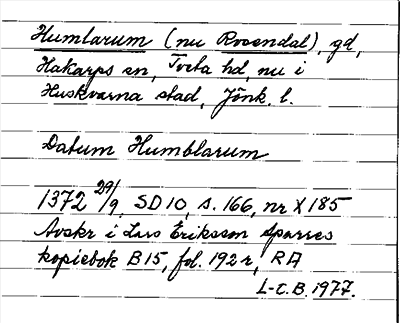 Humlarum (nu Rosendal), gd,
Hakarps sn, Tveta hd, nu i
Huskvarna stad, Jönk. l.
Datum Humblarum
1372 29/9, SD 10, s. 166, nr X 185
Avskr i Lars Eriksson Sparres
kopiebok B 15, fol. 192 r, RA
L-C.B. 1977.